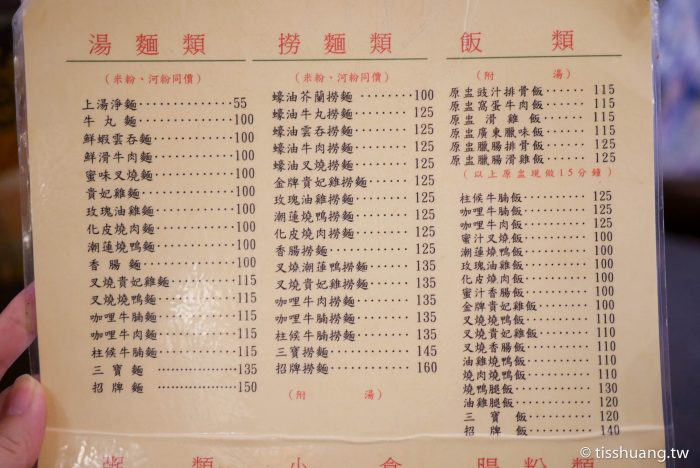 湯麵類
(米粉、河粉同價)
上湯淨麵 55
牛丸麵 100
鮮蝦雲吞麵 100
鮮滑牛肉麵 100
蜜味叉燒麵 100
貴妃雞麵 100
玫瑰油雞麵 100
化皮燒肉麵 100
潮蓮燒鴨麵 100
香腸麵 100
叉燒貴妃雞麵 115
叉燒燒鴨麵 115
咖哩牛腩麵 115
咖哩牛肉麵 115
柱候牛腩麵 115
三寶麵 135
招牌麵 150
撈麵類
(米粉、河粉同價)
蠔油芥蘭撈麵 100
蠔油牛丸撈麵 125
蠔油雲吞撈麵 125
蠔油牛肉撈麵 125
蠔油叉燒撈麵 125
金牌貴妃雞撈麵 125
玫瑰油雞撈麵 125
潮蓮燒鴨撈麵 125
化皮燒肉撈麵 125
香腸撈麵 125
叉燒潮蓮燒鴨撈麵 135
叉燒貴妃雞撈麵 135
咖哩牛肉撈麵 135
咖哩牛腩撈麵 135
柱候牛腩撈麵 135
三寶撈麵 145
招牌撈麵 160
(附湯)
飯類
(附湯)
原盅豉汁排骨飯 115
原盅窩蛋牛肉飯 115
原盅滑雞飯 115
原盅廣東臘味飯 115
原盅臘腸排骨飯 125
原盅臘腸滑雞飯 125
(以上原盅現做15分鐘)
柱候牛腩飯 125
咖哩牛腩飯 125
咖哩牛肉飯 125
蜜汁叉燒飯 100
潮蓮燒鴨飯 100
玫瑰油雞飯 100
化皮燒肉飯 100
蜜汁香腸飯 100
金牌貴妃雞飯 100
叉燒燒鴨飯 110
叉燒貴妃雞飯 110
叉燒香腸飯 110
油雞燒鴨飯 110
燒肉燒鴨飯 110
燒鴨腿飯 130
油雞腿飯 120
三寶飯 120
招牌飯 140
粥類
小食
腸粉類
© tisshuang.tw